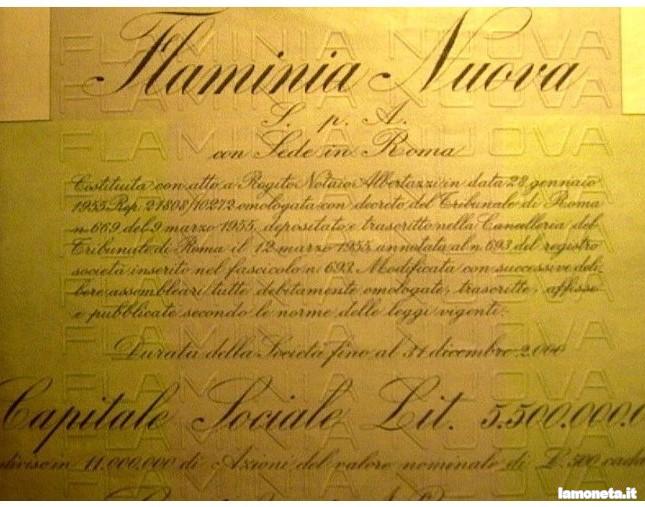 FLAMINIA NUOVA
Flaminia Nuova
S. p. A.
con Sede in Roma
Costituita con atto a Rogito Notaio Albertazzi in data 28 gennaio
1955 Rep. 21808/10272 omologata con decreto del Tribunale di Roma
n. 669 del 9 marzo 1955, depositato e trascritto nella Cancelleria del
Tribunale di Roma il 12 marzo 1955 annotata al n. 693 del registro
società inserito nel fascicolo n. 693. Modificata con successive deli-
bere assembleari tutte debitamente omologate, trascritte, affisse
e pubblicate secondo le norme delle leggi vigenti.
Durata della Società fino al 31 dicembre 2000
Capitale Sociale Lit. 5.500.000.0
diviso in 11.000.000 di Azioni del valore nominale di L. 500 cada
lamoneta.it